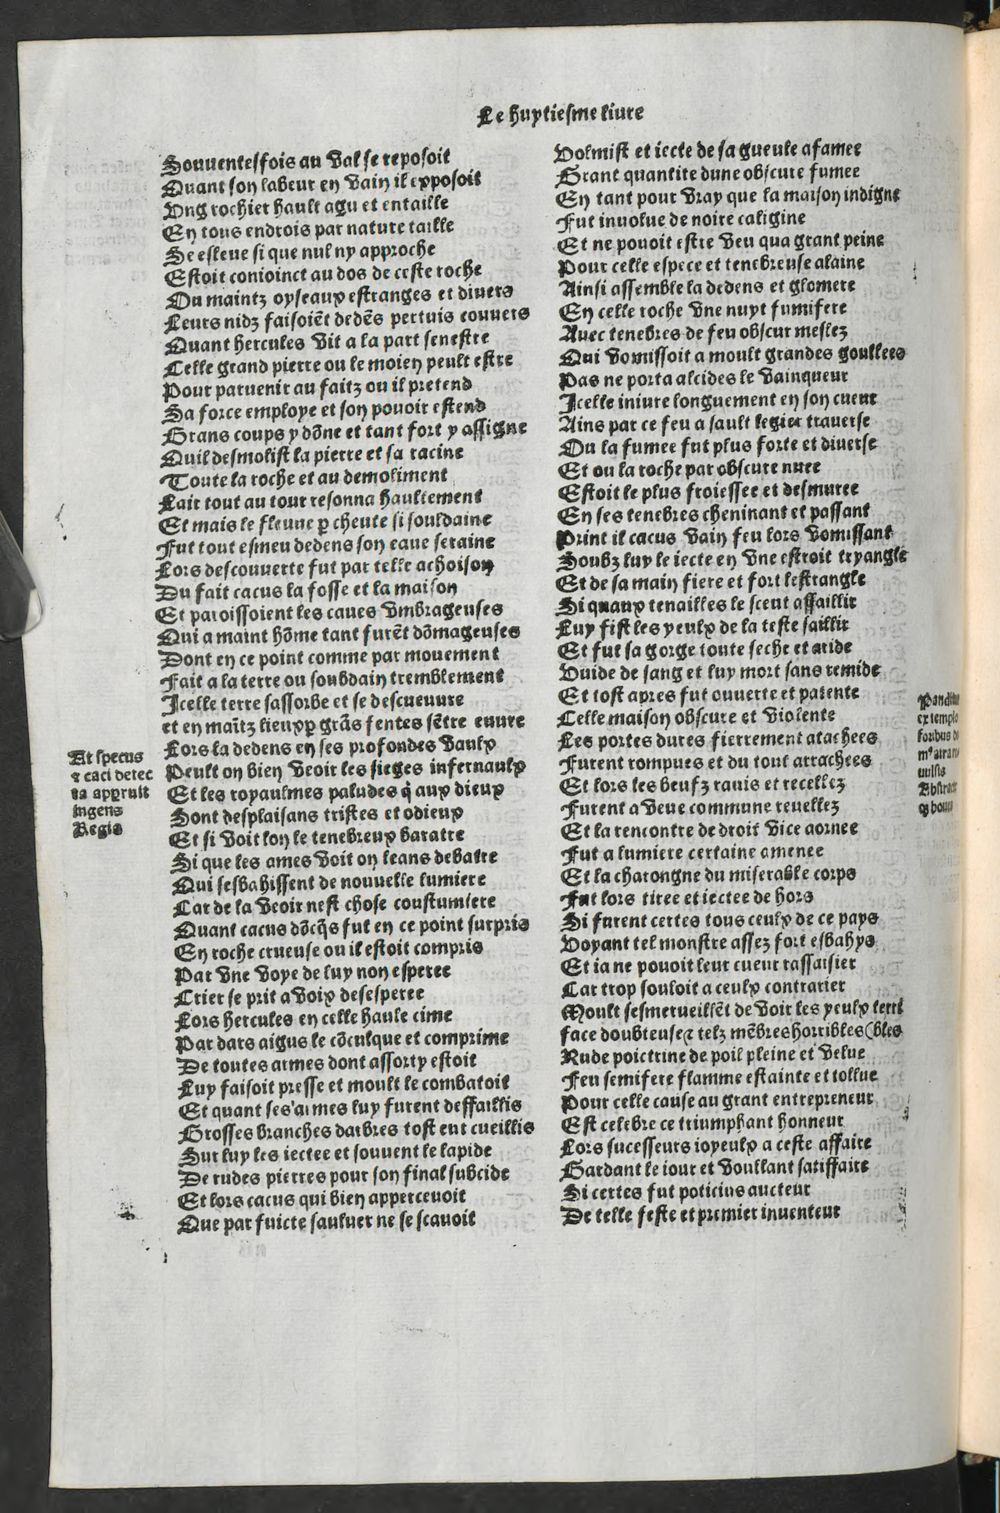 Le huytiesme liure
Souuentesfois au val se reposoit
Quant son labeur en vain il exposoit
Vng rochier hault agu et entaille
En tous endrois par nature taille
Se esleue si que nul ny approche
Estoit conioinct au dos de ceste roche
Ou maintz oyseaux estranges et diuers
Leurs nidz faisoiẽt dedẽs pertuis couuers
Quant hercules vit a la part senestre
Celle grand pierre ou le moien peult estre
Pour paruenir au faitz ou il pretend
Sa force employe et son pouoir estend
Grans coups y dõne et tant fort y assigne
Quil desmolist la pierre et sa racine
Toute la roche et au demoliment
Lair tout au tour resonna haultement
Et mais le fleuue ꝑ cheute si souldaine
Fut tout esmeu dedens son eaue seraine
Lors descouuerte fut par telle achoison
Du fait cacus la fosse et la maison
Et paroissoient les caues vmbrageuses
Qui a maint hõme tant furẽt dõmageuses
Dont en ce point comme par mouement
Fait a la terre ou soubdain tremblement
Icelle terre sassorbe et se descueuure
et en maĩtz lieuxꝑ grãs fentes sẽtre euure
Lors la dedens en ses profondes vaulx
Peult on bien veoir les sieges infernaulx
Et les royaulmes paludes q̃ aux dieux
Sont desplaisans tristes et odieux
Et si voit lon le tenebreux baratre
Si que les ames voit on leans debatre
Qui sesbahissent de nouuelle lumiere
Car de la veoir nest chose coustumiere
Quant cacus dõcq̃s fut en ce point surpris
En roche crueuse ou il estoit compris
Par vne voye de luy non esperee
Crier se prit a voix desesperee
Lors hercules en celle haule cime
Par dars aigus le cõculque et comprime
De toutes armes dont assorty estoit
Luy faisoit presse et moult le combatoit
Et quant ses armes luy furent deffaillis
Grosses branches darbres tost eut cueillis
Sur luy les iectee et souuent le lapide
De rudes pierres pour son final subcide
Et lors cacus qui bien apperceuoit
Que par fuicte sauluer ne se scauoit
At specus
⁊ caci detec
ta apparuit
ingens
Regia
Volmist et iecte de sa gueule afamee
Grant quantite dune obscure fumee
En tant pour vray que la maison indigne
Fut inuolue de noire caligine
Et ne pouoit estre veu qua grant peine
Pour celle espece et tenebreuse alaine
Ainsi assemble la dedens et glomere
En celle roche vne nuyt fumifere
Auec tenebres de feu obscur meslez
Qui vomissoit a moult grandes goullees
Pas ne porta alcides le vainqueur
Icelle iniure longuement en son cueur
Ains par ce feu a sault legier trauerse
Ou la fumee fut plus forte et diuerse
Et ou la roche par obscure nuee
Estoit le plus froiessee et desmuree
En ses tenebres cheninant et passant
Print il cacus vain feu lors vomissant
Soubz luy le iecte en vne estroit tryangle
Et de sa main fiere et fort lestrangle
Si quaux tenailles le sceut assaillir
Luy fist les yeulx de la teste saillir
Et fut sa gorge toute seche et aride
Vuide de sang et luy mort sans remide
Et tost apres fut ouuerte et patente
Celle maison obscure et violente
Les portes dures fierement atachees
Furent rompues et du tout arrachees
Et lors les beufz rauis et recellez
Furent a veue commune reuellez
Et la rencontre de droit vice aornee
Fut a lumiere certaine amenee
Et la charongne du miserable corps
Fut lors tiree et iectee de hors
Si furent certes tous ceulx de ce pays
Voyant tel monstre assez fort esbahys
Et ia ne pouoit leur cueur rassaisier
Car trop souloit a ceulx contrarier
Moult sesmerueillẽt de voir les yeulx terri
face doubteuse⁊ telz mẽbres horribles (bles
Rude poictrine de poil pleine et velue
Feu semifere flamme estainte et tollue
Pour celle cause au grant entrepreneur
Est celebre ce triumphant honneur
Lors sucesseurs ioyeulx a ceste affaire
Gardant le iour et voullant satiffaire
Si certes fut poticius aucteur
De telle feste et premier inuenteur
extemplo
foribus
Abstract